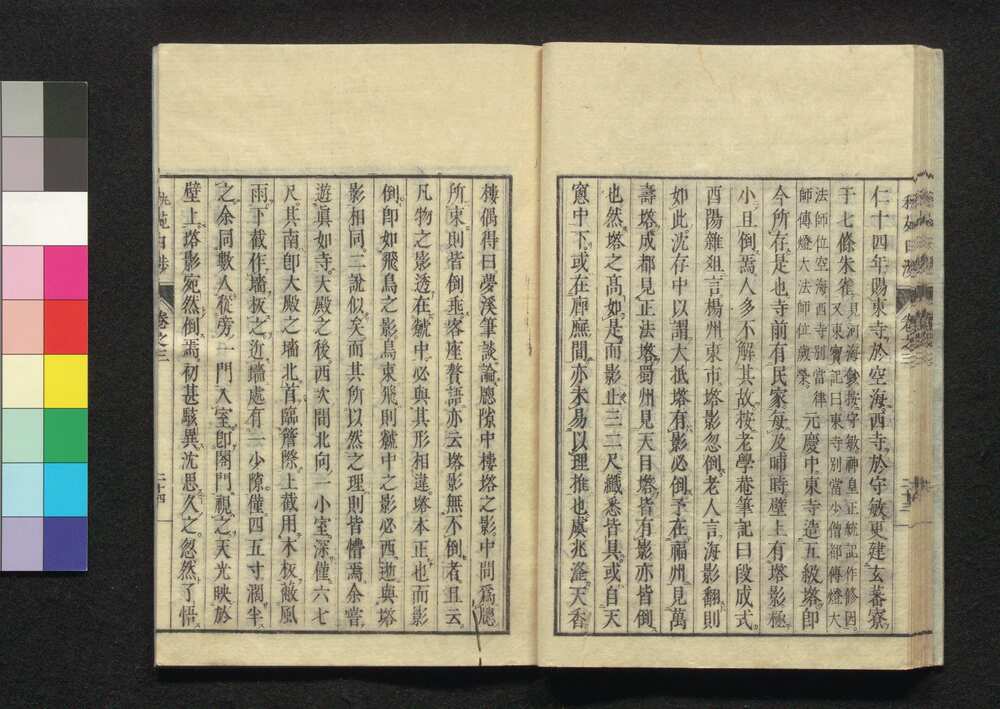 仁十四年賜東寺於空海西寺於守敏更建玄蕃寮
于七條朱雀見河海鈔按守敏神皇正統記作修因
又東寶記曰東寺別當少僧都傳燈大
法師位空海西寺別當律
師傳燈大法師位歲榮元慶中東寺造五級塔卽
今所存是也寺前有民家每及晡時壁上有塔影極
小且倒焉人多不解其故按老學菴筆記曰段成式
酉陽雜俎言楊州東市塔影忽倒老人言海影翻則
如此沈存中以謂大抵塔有影必倒予在福州見萬
壽塔成都見正法塔蜀州見天目塔皆有影亦皆倒
也然塔之高如是而影止三二尺纖悉皆具或自天
窻中下或在廊廡間亦未易以理推也虞兆漋天香
樓偶得曰夢溪筆談論牕隙中樓塔之影中間爲牕
所束則皆倒垂客座贅語亦云塔影無不倒者且云
凡物之影透在竅中必與其形相違塔本正也而影
倒卽如飛鳥之影鳥東飛則竅中之影必西逝與塔
影相同二說似矣而其所以然之理則皆懵焉余嘗
遊眞如寺大殿之後西次間北向一小室深僅六七
尺其南卽大殿之墻北首臨簷際上截用木板敵風
雨下截作墻板之近墻處有一少隙僅四五寸濶半
之余同數人從旁一門入室卽閤門視之天光映於
壁上塔影宛然倒焉初甚駭異沈思久之忽然了悟
卷之三
二十四